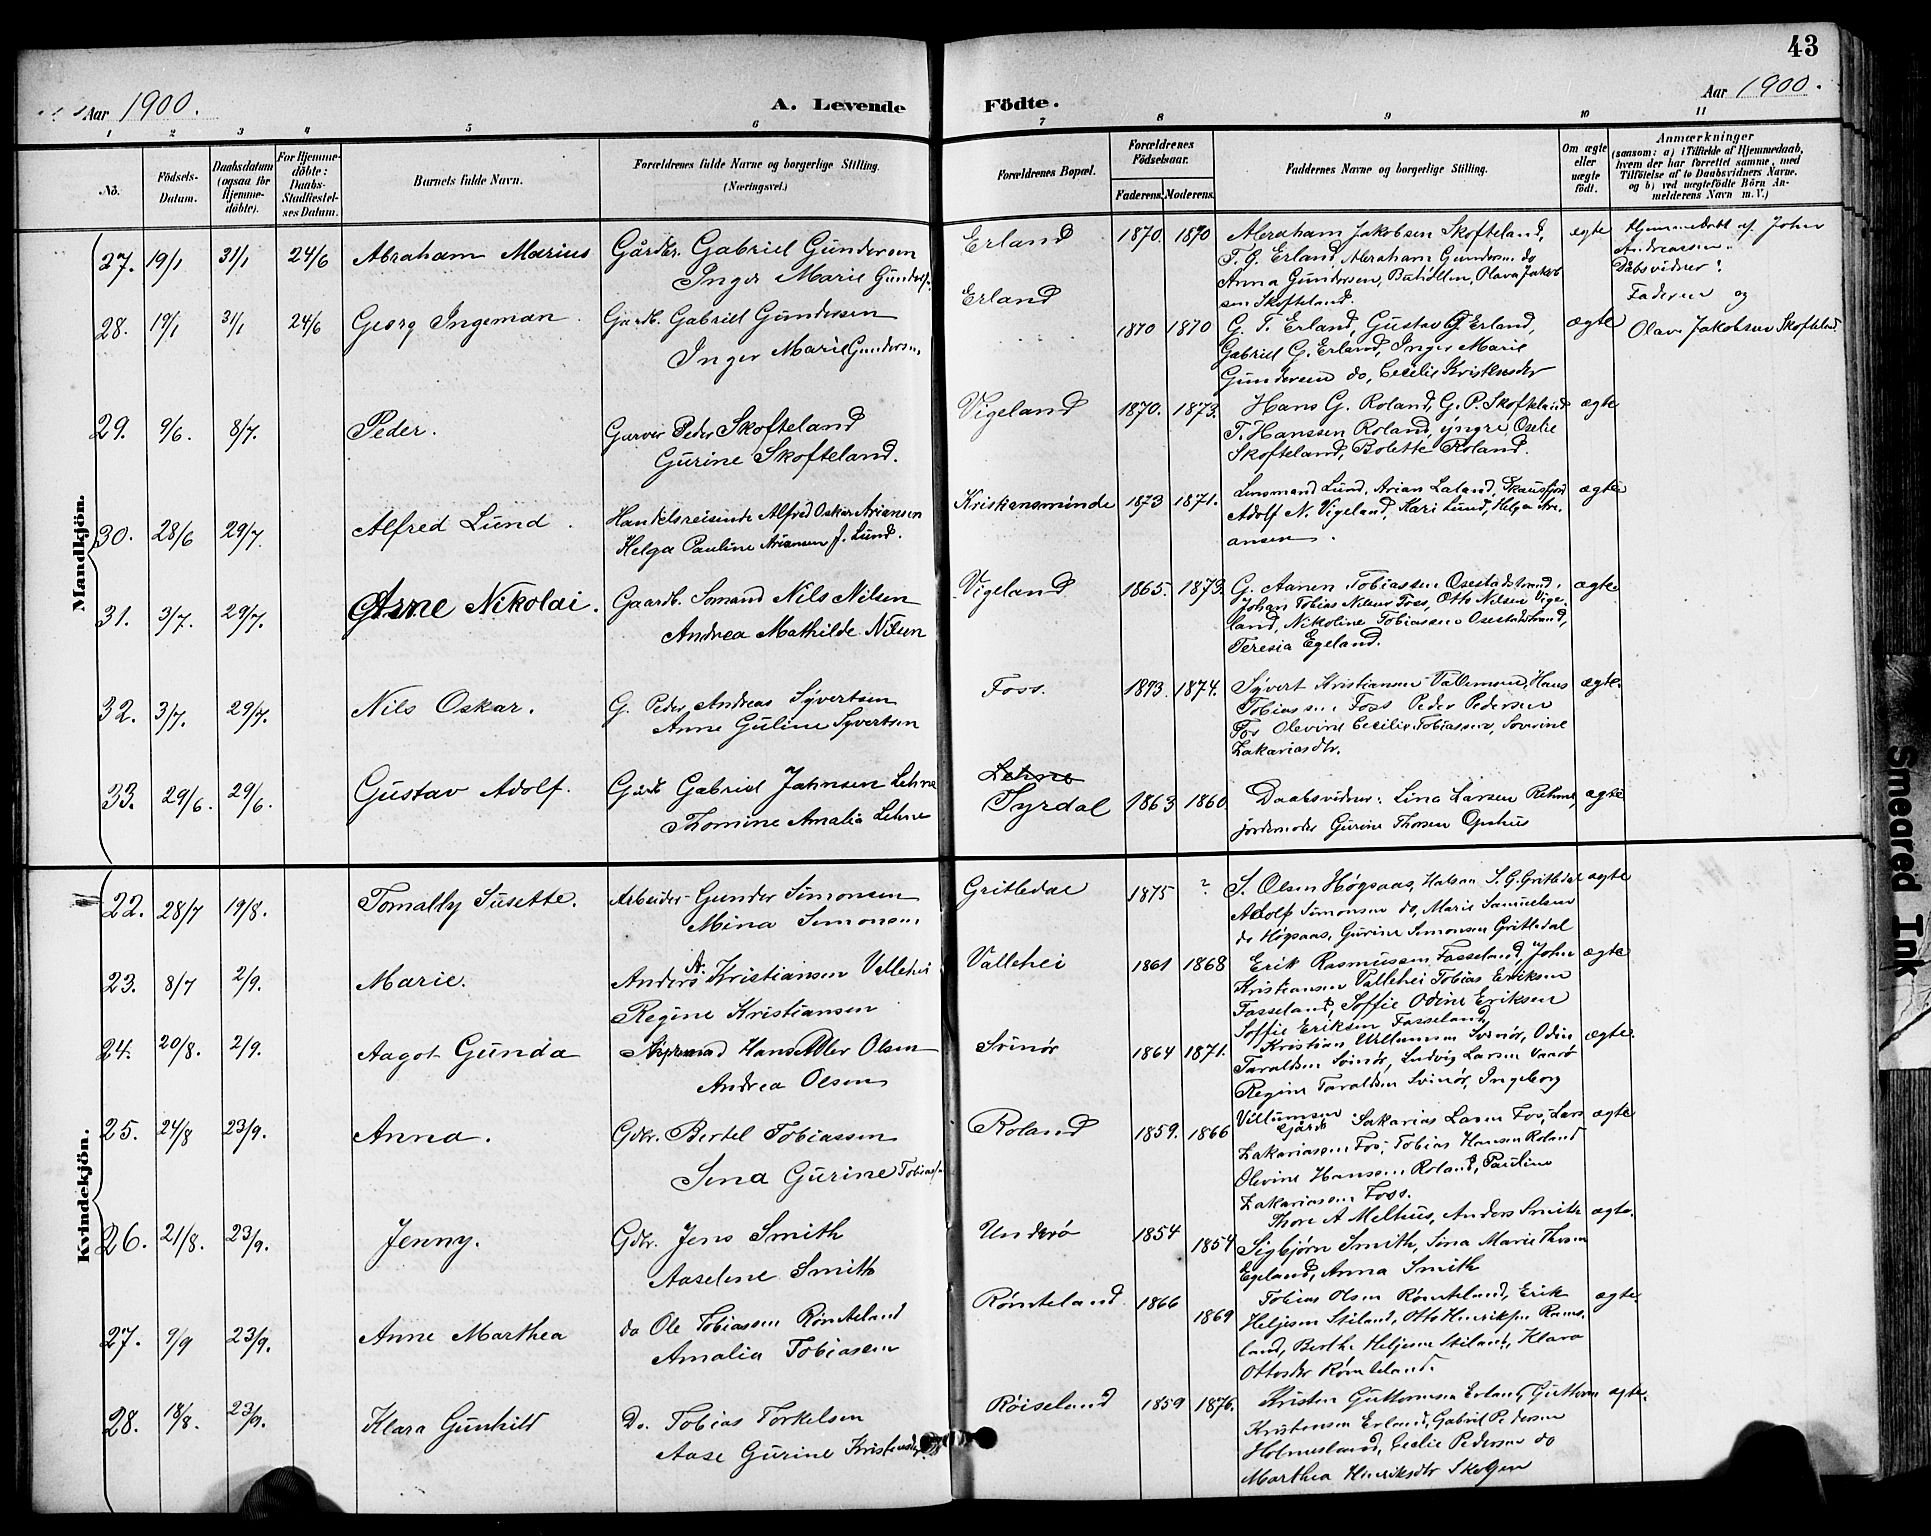 43
Aar 1900.
A. Levende Födte.
Aar 1900.
1 2 3 4 5 6 7 8 9 10 11
No.
Födsels-Datum.
Daabsdatum (ogsaa for Hjemme-döbte).
For Hjemme-döbte: Daabs-Stadfæstel-ses Datum.
Barnets fulde Navn.
Forældrenes fulde Navne og borgerlige Stilling. (Næringsvei.)
Forældrenes Bopæl.
Forældrenes Födselsaar.
Faderens. Moderens.
Faddernes Navne og borgerlige Stilling.
Om ægte eller uægte födt.
Anmærkninger
(saasom: a) i Tilfælde af Hjemmedaab,
hvem der har forrettet samme, med
Tilföielse af to Daabsvidners Navne,
og b) ved uægtefödte Börn An-
melderens Navn m. V.)
Mandkjön.
27. 19/1 31/1 24/6 Abraham Marius Gårdbr. Gabriel Gundersen
Inger Marie Gunders.
Erland 1870 1870 Abraham Jakobsen Skofteland,
T. G. Erland, Abraham Gundersen do
Anna Gundersen, Olava Jakob
sen Skofteland.
ægte Hjemmedøbt af John
Andreassen.
Dåbsvidner:
Faderen og
Olava Jakobsen Skofteland
28. 19/1 31/1 24/6 Georg Ingeman. Gårdb. Gabriell Gundersen
Inger Marie Gundersen,
Erland 1870 1870 G. T. Erland, Gustav G. Erland,
Gabriell G. Erland, Inger Marie
Gundersen do, Cecilie Kristensdtr
ægte
29. 9/6. 8/7. Peder. Garver Peder Skofteland
Gurine Skofteland.
Vigeland 1870. 1873. Hans G. Roland, G. P. Skofteland
T. Hanssen Roland, yngre, Oselie
Skofteland, Bolette Roland.
ægte
30. 28/6 29/7. Alfred Lund. Handelsreisende Alfred Oskar Ariansen
Helga Pauline Ariansen f. Lund.
Kristiansminde 1873 1871. Lensmand Lund, Arian Laland,
Adolf N. Vigeland, Kari Lund, Helga Ari-
ansen.
ægte
31. 3/7. 29/7. Arne Nikolai. Gaardb. Sømand Nils Nilsen
Andrea Mathilde Nilsen
Vigeland 1865. 1873. G. Aanen Tobiassen Osestadstrand,
Johan Tobias Nilsen Foss, Otto Nilsen Vige-
land, Nikoline Tobiassen Osestadstrand,
Teresia Egeland.
ægte
32. 3/7. 29/7. Nils Oskar. G. Peder Andreas Syvertsen
Anne Guline Syvertsen
Foss. 1873. 1874. Syvert Kristiansen Valemoen, Hans
Tobiassen Foss Peder Pedersen
Fos Olevine Cecilie Tobiassen, Soverine
Zakariasdtr.
ægte.
33. 29/6. 29/6. Gustav Adolf. Gårdb Gabriel Jahnsen Lehne
Thomine Amalia Lehne
Lehne
Syrdal 1863 1860 Daabsvidner: Lina Larsen Rehme,
jordemoder Gurine Thorsen Opshus
ægte
Kvindekjön.
22. 28/7 19/8. Tomally Susette. Arbeider Gunder Simonsen
Mina Simonsen
Gritledal 1875 ? S. Olsen Høgsaas, S. G. Gritledal
Adolf Simonsen do, Marie Samuelsen
do Høgsaas, Gurine Simonsen Gritledal
ægte
23. 8/7 2/9. Marie. Anders N. Kristiansen Vallehei
Regine Kristiansen
Vallehei 1861 1868 Erik Rasmussen Fasseland, John
Kristiansen Vallehei Tobias Eriksen
Fasseland, Soffie Odine Eriksen
Soffie Eriksen Fasseland
ægte
24. 20/8. 2/9. Aagot Gunda Hans Adler Olsen
Andrea Olsen
Svinør 1864 1871. Kristian Villumsen Svinør, Odin
Taraldsen Svinør, Ludvig Larsen
Regine Taraldsen Svinør, Ingeborg
Villumsen
ægte.
25. 24/8 23/9. Anna. Gdbr. Bertel Tobiassen
Sina Gurine Tobias.
Roland 1859. 1866 Gårdb Sakarias Larsen Fos, Lars
Zakariassen Fos, Tobias Hansen Roland
Olevine Hansen Roland, Pauline
Zakariasen Foss.
ægte
26. 21/8. 23/9. Jenny. Gdbr. Jens Smith
Aaseline Smith
Underø 1854 1854 Thore A Melhus, Anders Smith
Sigbjørn Smith, Sina Marie Thorsen
Egeland, Anna Smith
ægte.
27. 9/9 23/9. Anne Marthea do Ole Tobiassen Rømteland
Amalia Tobiasen
Rømteland 1866 1869 Tobias Olsen Rømteland, Erik
Heljesen Stiland, Otto Henriksen Rams-
land, Berthe Heljesen Stiland, Klara
Ottosdtr Rømteland.
ægte.
28. 18/8. 23/9. Klara Gunhild Do. Tobias Torkelsen
Aase Gurine Kristensdtr.
Røiseland 1859 1876. Kristen Guttormsen Erland, Guttorm
Kristensen Erland, Gabriel Pedersen
Holmesland, Cecilie Pedersen do
Marthea Henriksdtr
ægte.
Smeared Ink